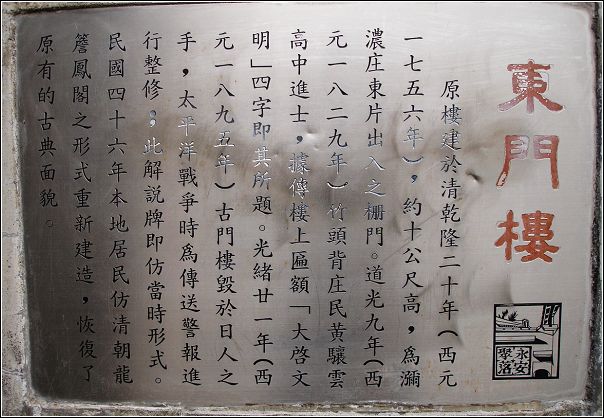 東門樓
原樓建於清乾隆二十年(西元
一七五六年)，約十公尺高，為瀰
濃庄東片出入之柵門。道光九年(西
元一八二九年)竹頭背庄民黃驤雲
高中進士，據傳樓上匾額「大啓文
明」四字即其所題。光緒廿一年(西
元一八九五年)古門樓毀於日人之
手，太平洋戰爭時為傳送警報進
行整修；此解說牌即仿當時形式。
民國四十六年本地居民仿清朝龍
簷鳳閣之形式重新建造，恢復了
原有的古典面貌。
永安
聚落